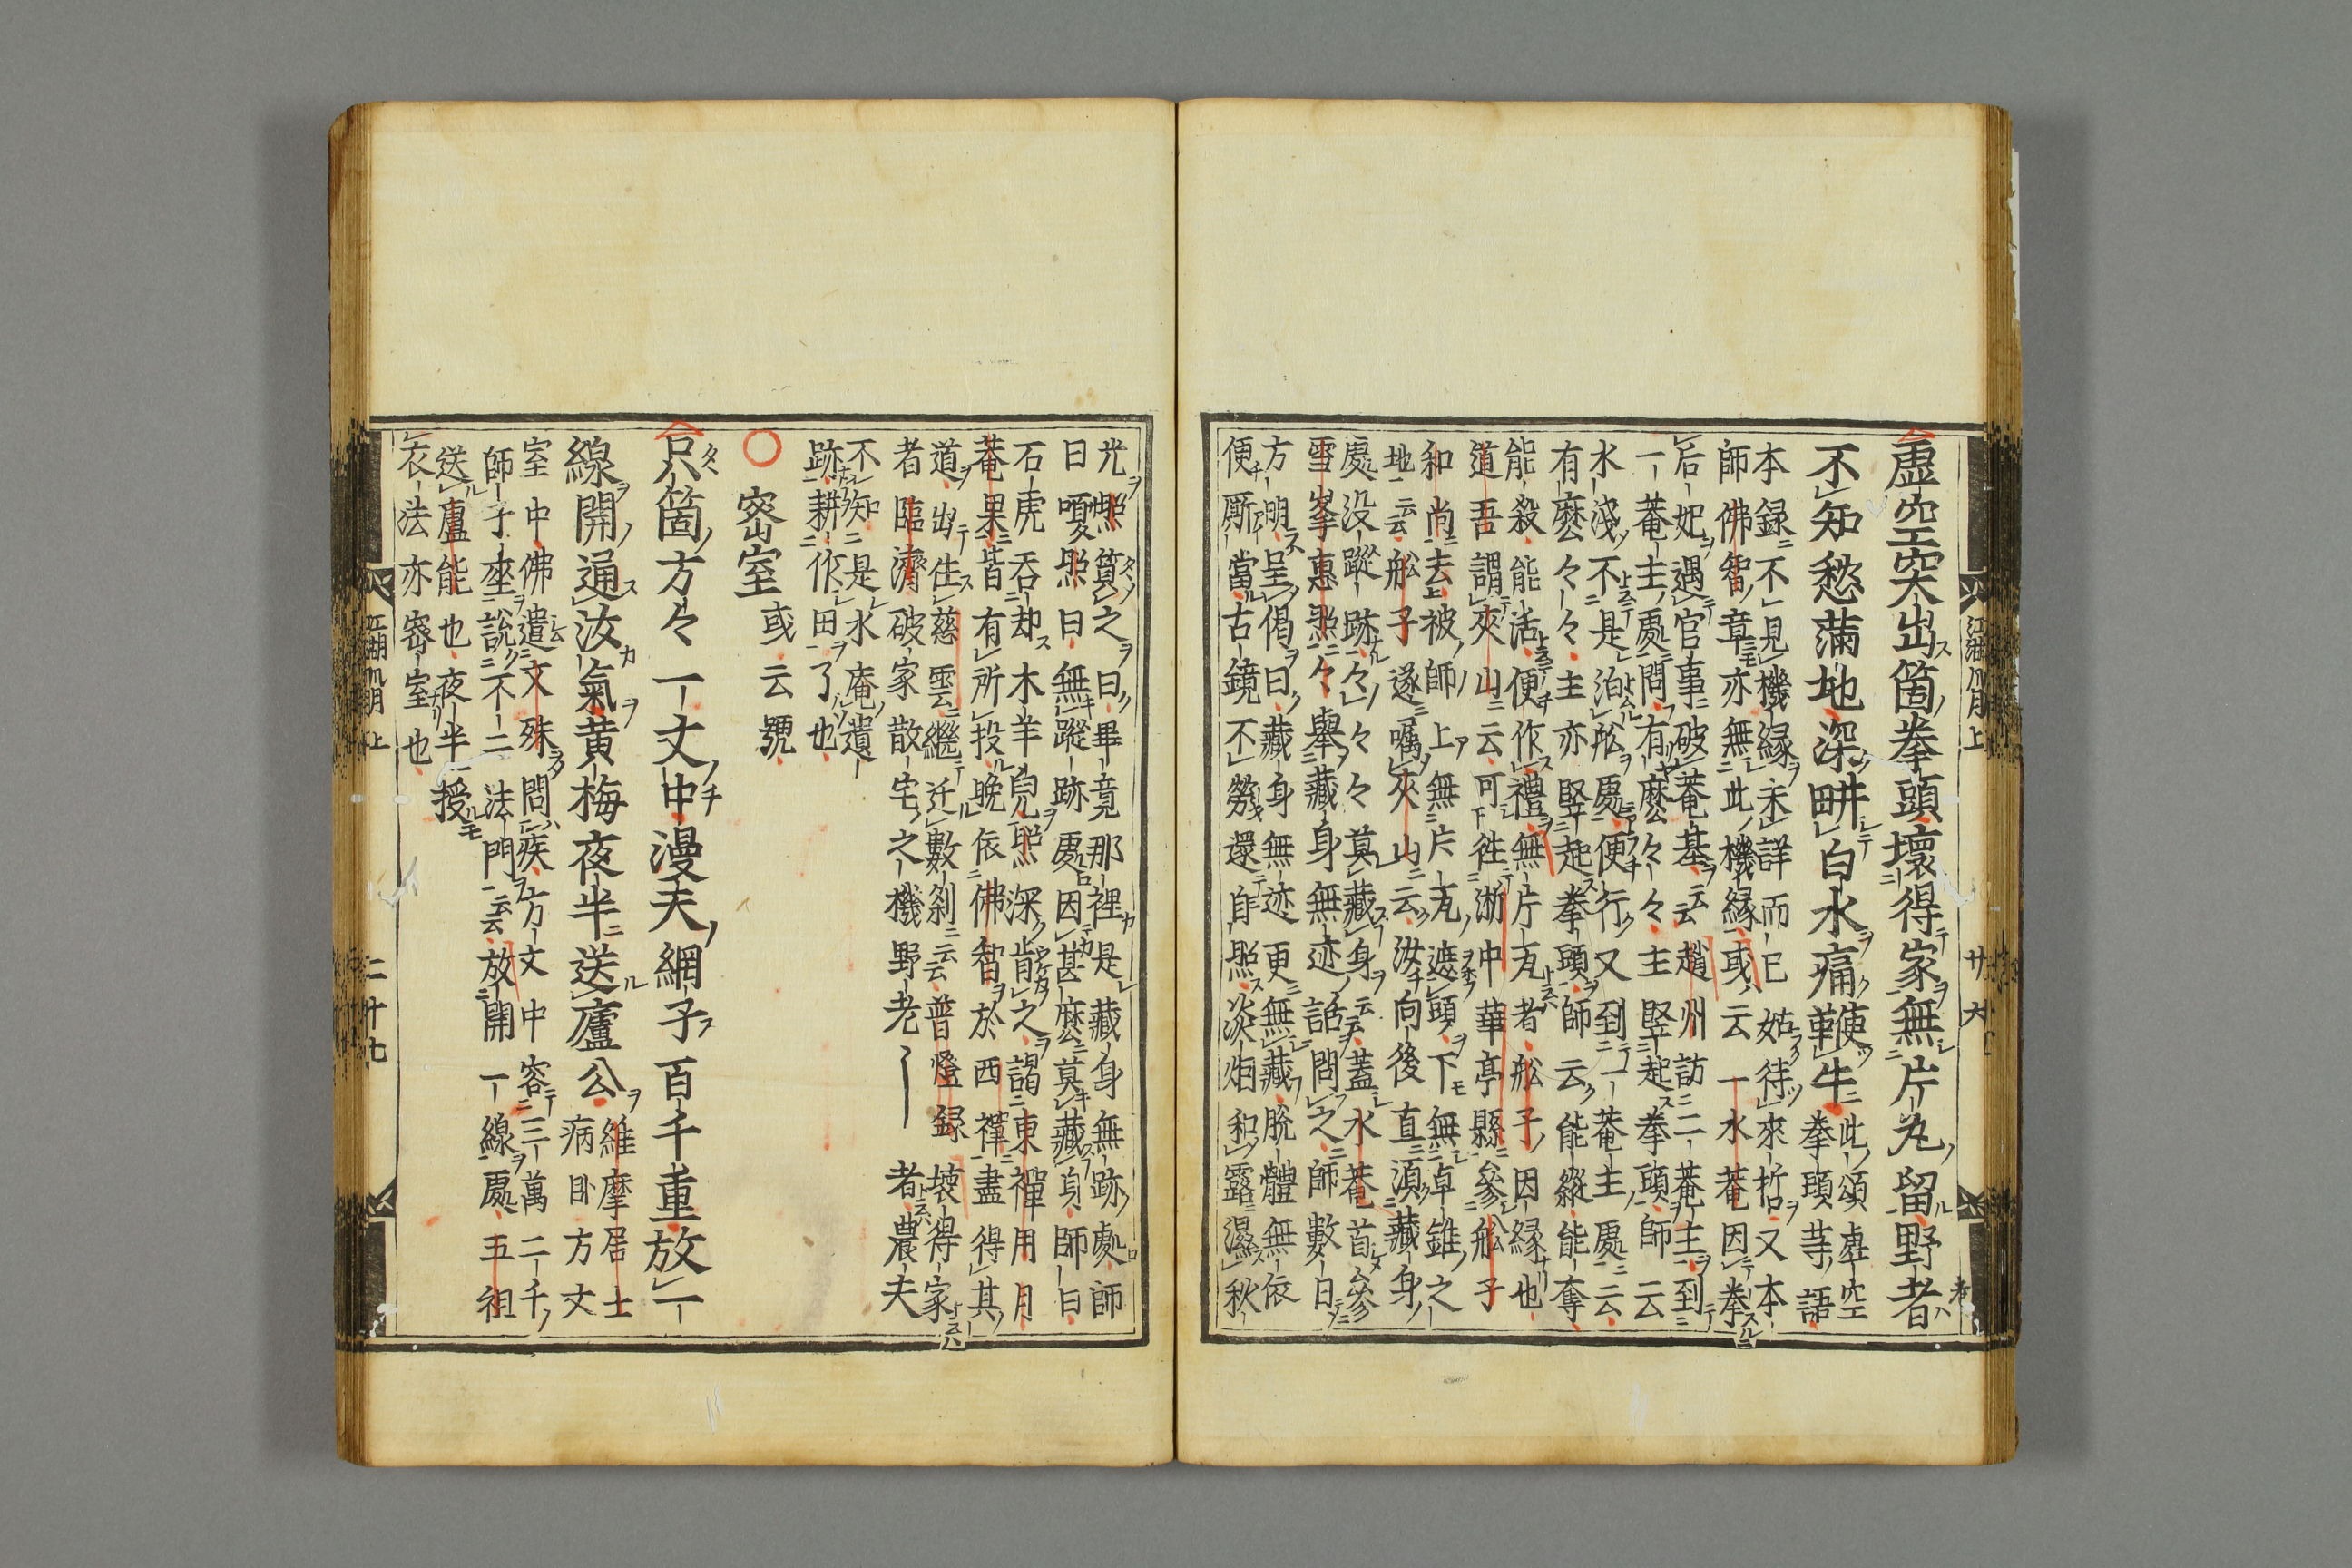 虛空突出箇拳頭壞得家無片瓦留野者
不知愁滿地深畊白水痛鞭牛
此頌虛空
拳頭等語
本録不見機緣未詳而已姑待來哲又本
師佛智章亦無此機緣或云一水菴因拳
后妃遇官事破菴基云云趙州訪二菴主到
一菴主處問有麼々々主竪起拳頭師云
水淺不是泊舩處便行又到一菴主處云
有麼々々主亦竪起拳頭師云能縱能奪
能殺能活便作禮無片瓦者舩子因緣也
道吾謂夾山云可往浙中華亭縣參舩子
和尚去被師上無片瓦遮頭下無卓錐之
地云云舩子遂囑夾山云汝向後直須藏身
處没蹤跡々々々莫藏身云云蓋水菴首參
雪峯惠照々擧藏身無迹話問之師數日
方明呈偈曰藏身無迹更無藏脱體無依
便厮當古鏡不勞還自照淡烟和露濕秋
江湖 上
廿六
光照質之曰畢竟那裡是藏身無跡處師
曰嗄照曰無蹤跡處因甚麼莫藏身師曰
石虎吞却木羊皃照深肯之謁東禪用月
菴果皆有所投晩依佛智於西禪盡得其
道出住慈雲繼迁數刹云云普燈録 壞得家
者臨濟破家散宅之機野老〱 者農夫
不知是水庵遺
跡耕作田了也
密室或云號
只箇方々一丈中漫天網子百千重放一
線開通汝氣黄梅夜半送廬公
維摩居士
病卧方丈
室中佛遣文殊問疾方丈中容三萬二千
師子座説不二法門云云放開一線處五祖
送廬能也夜半授
衣法亦密室也
江湖 上
二十七